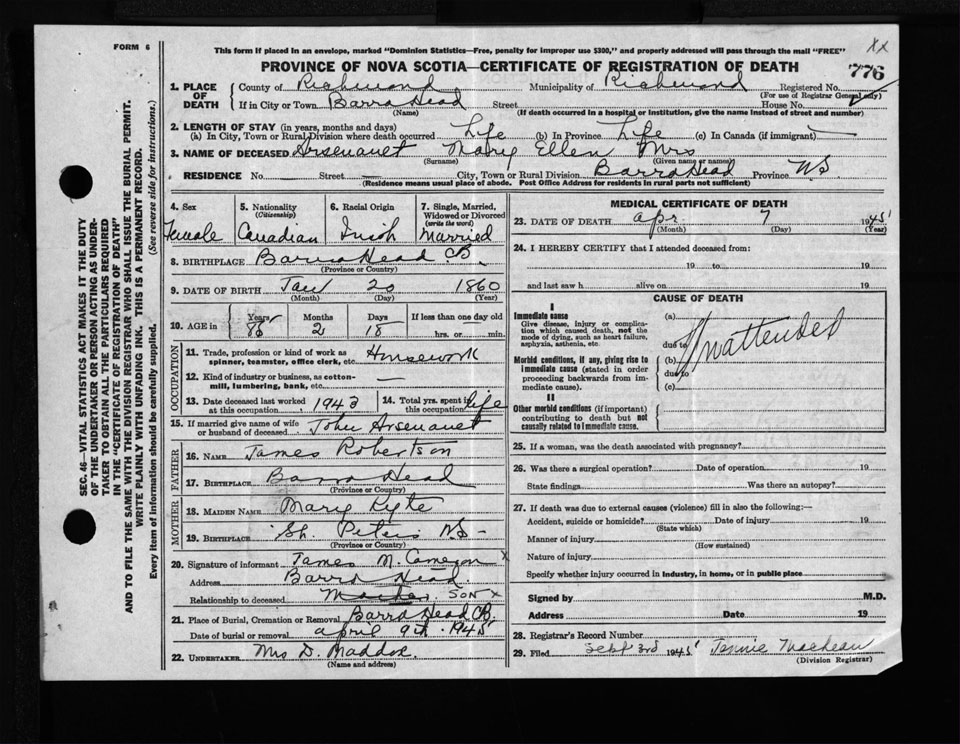 FORM 6
This form if placed in an envelope, marked "Dominion Statistics—Free, penalty for improper use $300," and properly addressed will pass through the mail "FREE"
XX
PROVINCE OF NOVA SCOTIA—CERTIFICATE OF REGISTRATION OF DEATH
776
1. PLACE OF DEATH
County of Richmond Municipality of Richmond Registered No.
(For use of Registrar General only)
If in City or Town Barra Head Street House No.
(Name) (If death occurred in a hospital or institution, give the name instead of street and number)
2. LENGTH OF STAY (in years, months and days)
(a) In City, Town or Rural Division where death occurred Life (b) In Province Life (c) In Canada (if immigrant) —
3. NAME OF DECEASED Arsenault Mary Ellen Mrs
(Surname) (Given name or names)
RESIDENCE No. — Street — City, Town or Rural Division Barra Head Province NS
(Residence means usual place of abode. Post Office Address for residents in rural parts not sufficient)
4. Sex Female
5. Nationality (Citizenship) Canadian
6. Racial Origin Irish
7. Single, Married, Widowed or Divorced (write the word) Married
8. BIRTHPLACE Barra Head CB.
(Province or Country)
9. DATE OF BIRTH Jan 20 1860
(Month) (Day) (Year)
10. AGE in Years 85 Months 2 Days 18 If less than one day old
hrs. or min.
OCCUPATION
11. Trade, profession or kind of work as spinner, teamster, office clerk, etc. Housework
12. Kind of industry or business, as cotton-mill, lumbering, bank, etc. —
13. Date deceased last worked at this occupation 1943
14. Total yrs. spent in this occupation life
15. If married give name of wife or husband of deceased John Arsenault
FATHER
16. NAME James Robertson
17. BIRTHPLACE Barra Head
(Province or Country)
MOTHER
18. MAIDEN NAME Mary Kyte
19. BIRTHPLACE St. Peters NS —
(Province or Country)
20. Signature of informant James M. Cameron X
Address Barra Head
Relationship to deceased Mother SON X
21. Place of Burial, Cremation or Removal Barra Head CB.
Date of burial or removal april 9th 1945
22. UNDERTAKER Mrs D. Maddox
(Name and address)
MEDICAL CERTIFICATE OF DEATH
23. DATE OF DEATH apr. 7 1945
(Month) (Day) (Year)
24. I HEREBY CERTIFY that I attended deceased from:
19 to 19
and last saw h alive on 19
CAUSE OF DEATH
I
Immediate cause
Give disease, injury or complication which caused death, not the mode of dying, such as heart failure, asphyxia, asthenia, etc.
(a)
due to
Morbid conditions, if any, giving rise to immediate cause (stated in order proceeding backwards from immediate cause).
(b)
due to
(c)
Unattended
II
Other morbid conditions (if important) contributing to death but not causally related to immediate cause.
25. If a woman, was the death associated with pregnancy?
26. Was there a surgical operation? Date of operation 19
State findings Was there an autopsy?
27. If death was due to external causes (violence) fill in also the following:—
Accident, suicide or homicide? Date of injury 19
(State which)
Manner of injury
(How sustained)
Nature of injury
Specify whether injury occurred in industry, in home, or in public place
Signed by M.D.
Address Date 19
28. Registrar's Record Number
29. Filed Sept 3rd 1945 Jennie MacLean
(Division Registrar)
SEC. 46—VITAL STATISTICS ACT MAKES IT THE DUTY
OF THE UNDERTAKER OR PERSON ACTING AS UNDER-
TAKER TO OBTAIN ALL THE PARTICULARS REQUIRED
IN THE "CERTIFICATE OF REGISTRATION OF DEATH"
AND TO FILE THE SAME WITH THE DIVISION REGISTRAR WHO SHALL ISSUE THE BURIAL PERMIT.
WRITE PLAINLY WITH UNFADING INK. THIS IS A PERMANENT RECORD.
Every item of information should be carefully supplied. (See reverse side for instructions.)